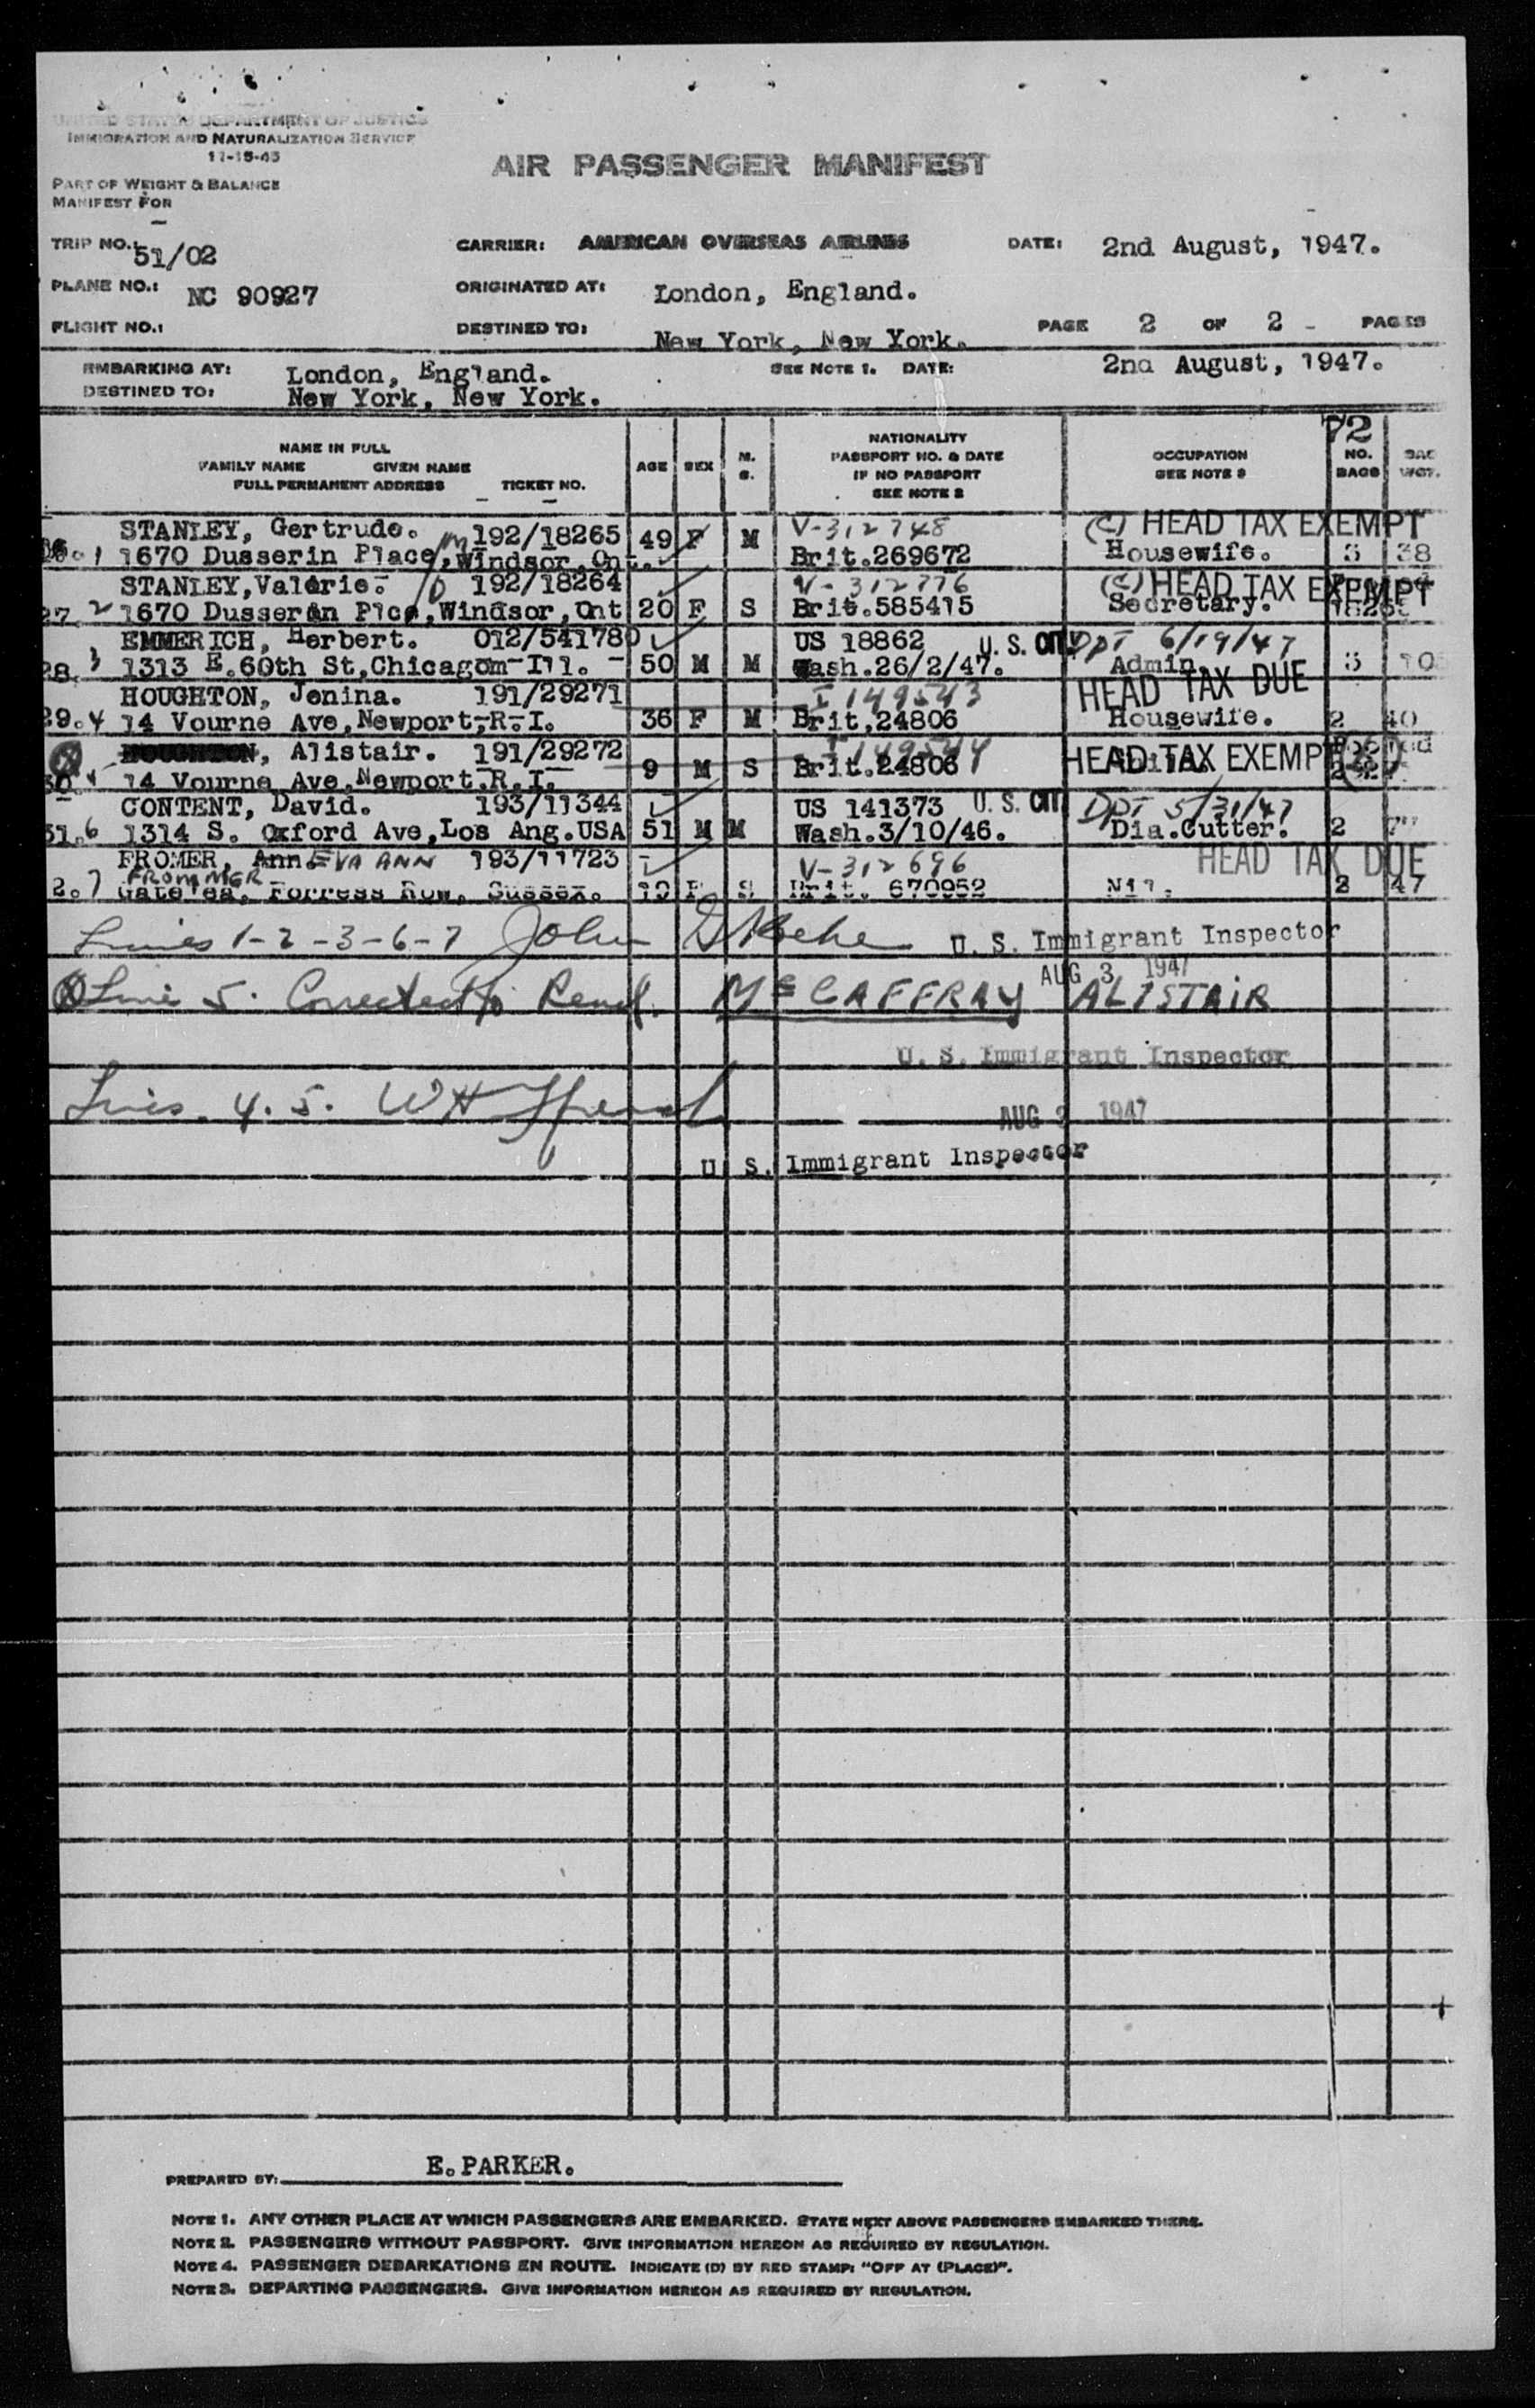 UNITED STATES DEPARTMENT OF JUSTICE
IMMIGRATION AND NATURALIZATION SERVICE
11-15-45
AIR PASSENGER MANIFEST
PART OF WEIGHT & BALANCE
MANIFEST FOR
TRIP NO.: 51/02 CARRIER: AMERICAN OVERSEAS AIRLINES DATE: 2nd August, 1947.
PLANE NO.: NC 90927 ORIGINATED AT: London, England.
FLIGHT NO.: DESTINED TO: New York, New York. PAGE 2 OF 2 - PAGES
EMBARKING AT: London, England. SEE NOTE 1. DATE: 2nd August, 1947.
DESTINED TO: New York, New York.
72
NAME IN FULL
FAMILY NAME GIVEN NAME
FULL PERMANENT ADDRESS TICKET NO.
AGE SEX M. S.
NATIONALITY
PASSPORT NO. & DATE
IF NO PASSPORT
SEE NOTE 2
OCCUPATION
SEE NOTE 3
NO. BAGS
WGT.
STANLEY, Gertrude. 192/18265 49 F M V-312748 (C) HEAD TAX EXEMPT
1 1670 Dusserin Place, Windsor, Ont. Brit.269672 Housewife. 3 38
STANLEY, Valerie. 192/18264 V-312776 (C) HEAD TAX EXEMPT
27. 2 1670 Dusserin Plce, Windsor, Ont 20 F S Brit.585415 Secretary.
EMMERICH, Herbert. 012/541780 US 18862 U.S. CIT DPT 6/19/47
28. 3 1313 E.60th St, Chicagom-Ill. 50 M M Wash.26/2/47. Admin. 3
HOUGHTON, Jenina. 191/29271 I 149543 HEAD TAX DUE
29. 4 14 Vourne Ave, Newport, R.I. 36 F M Brit.24806 Housewife. 2 40
HOUGHTON, Alistair. 191/29272 I 149544 HEAD TAX EXEMPT
30. 14 Vourne Ave, Newport.R.I. 9 M S Brit.24806
CONTENT, David. 193/11344 US 141373 U.S. CIT DPT 5/31/47
31. 6 1314 S. Oxford Ave, Los Ang.USA 51 M M Wash.3/10/46. Dia.Cutter. 2
FROMER, Ann EVA ANN 193/11723 V-312696 HEAD TAX DUE
FROMMER
2. 7 Forress Row, Sussex. 19 F S Brit. 670952 Nil. 2 47
Lines 1-2-3-6-7 John U. S. Immigrant Inspector
AUG 3 1947
X Line 5. Corrected to Read. McCAFFRAY ALISTAIR
U. S. Immigrant Inspector
Lines. 4. 5. WH
AUG 3 1947
U. S. Immigrant Inspector
PREPARED BY: E. PARKER.
NOTE 1. ANY OTHER PLACE AT WHICH PASSENGERS ARE EMBARKED. STATE NEXT ABOVE PASSENGERS EMBARKED THERE.
NOTE 2. PASSENGERS WITHOUT PASSPORT. GIVE INFORMATION HEREON AS REQUIRED BY REGULATION.
NOTE 4. PASSENGER DEBARKATIONS EN ROUTE. INDICATE (D) BY RED STAMP: "OFF AT (PLACE)".
NOTE 3. DEPARTING PASSENGERS. GIVE INFORMATION HEREON AS REQUIRED BY REGULATION.